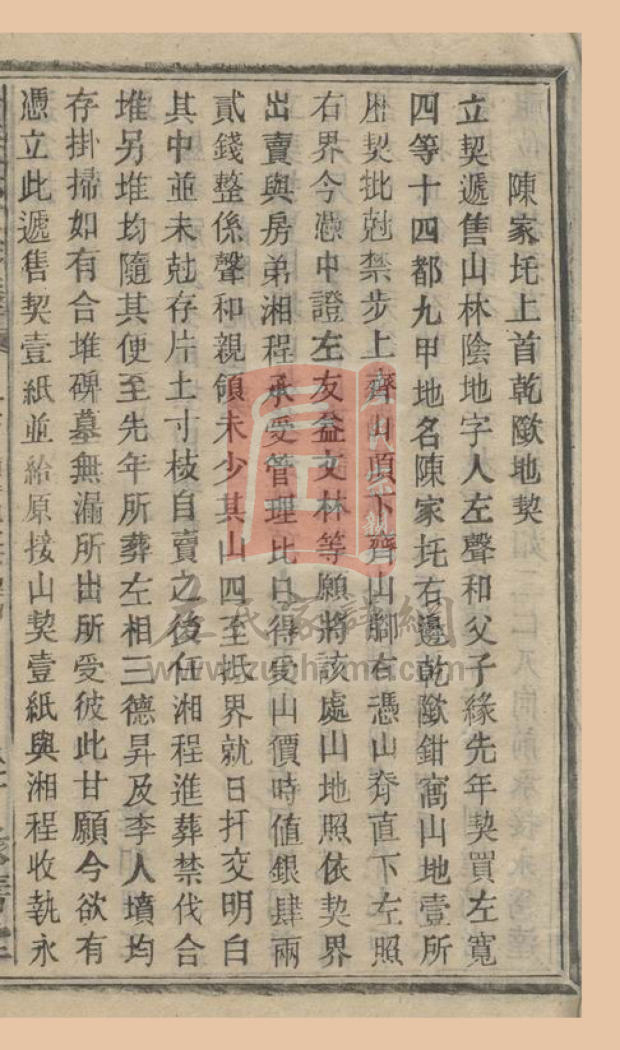 陳家圫上首乾歐地契
立契遞售山林陰地字人左聲和父子緣先年契買左寬
四等十四都九甲地名陳家圫右邊乾歐鉗窩山地壹所
歴契批尅禁步上齊山頂下齊山腳右憑山脊直下左照
右界今憑中證左友益文林等願將該處山地照依契界
出賣與房弟湘程承受管理比日得受山價時值銀肆兩
貳錢整係聲和親領未少其山四至抵界就日扦交明白
其中並未尅存片土寸枝自賣之後任湘程進葬禁伐合
堆另堆均隨其便至先年所葬左相三德昇及李人墳均
存掛掃如有合堆碑墓無漏所出所受彼此甘願今欲有
憑立此遞售契壹紙並給原接山契壹紙與湘程收執永
左氏家譜網
www.zuojiapu.com